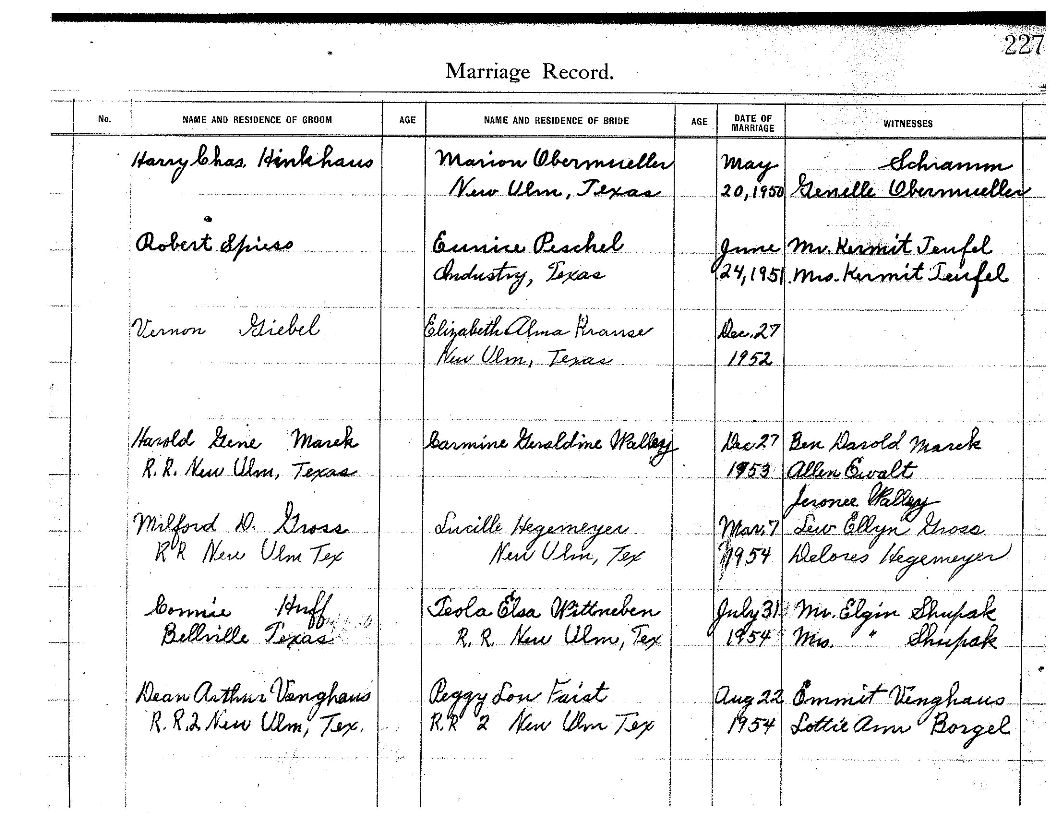 227
Marriage Record.
No. NAME AND RESIDENCE OF GROOM AGE NAME AND RESIDENCE OF BRIDE AGE DATE OF MARRIAGE WITNESSES
Harry Chas. Hinkhaus Marion Obermueller May Schramm
New Ulm, Texas 20, 1950 Genelle Obermueller
Robert Spiess Eunice Peschel June Mr. Kermit Teufel
Industry, Texas 24, 1951 Mrs. Kermit Teufel
Vernon Giebel Elizabeth Alma Krause Dec. 27
New Ulm, Texas 1952
Harold Gene Marek Carmine Geraldine Walley Dec 27 Ben Darold Marek
R.R. New Ulm, Texas 1953 Allen Ewalt
Walley
Milford D. Gross Lucille Hegemeyer Mar. 7 Lew Ellyn Gross
RR New Ulm Tex New Ulm, Tex 1954 Delores Hegemeyer
Connie Huff Teola Elsa Wittneben July 31 Mr. Elgin Shupak
Bellville Texas R.R. New Ulm, Tex 1954 Mrs. " Shupak
Dean Arthur Venghaus Peggy Lou Faist Aug 22 Emmit Venghaus
R.R.2 New Ulm, Tex. R.R 2 New Ulm Tex 1954 Lottie Ann Borgel